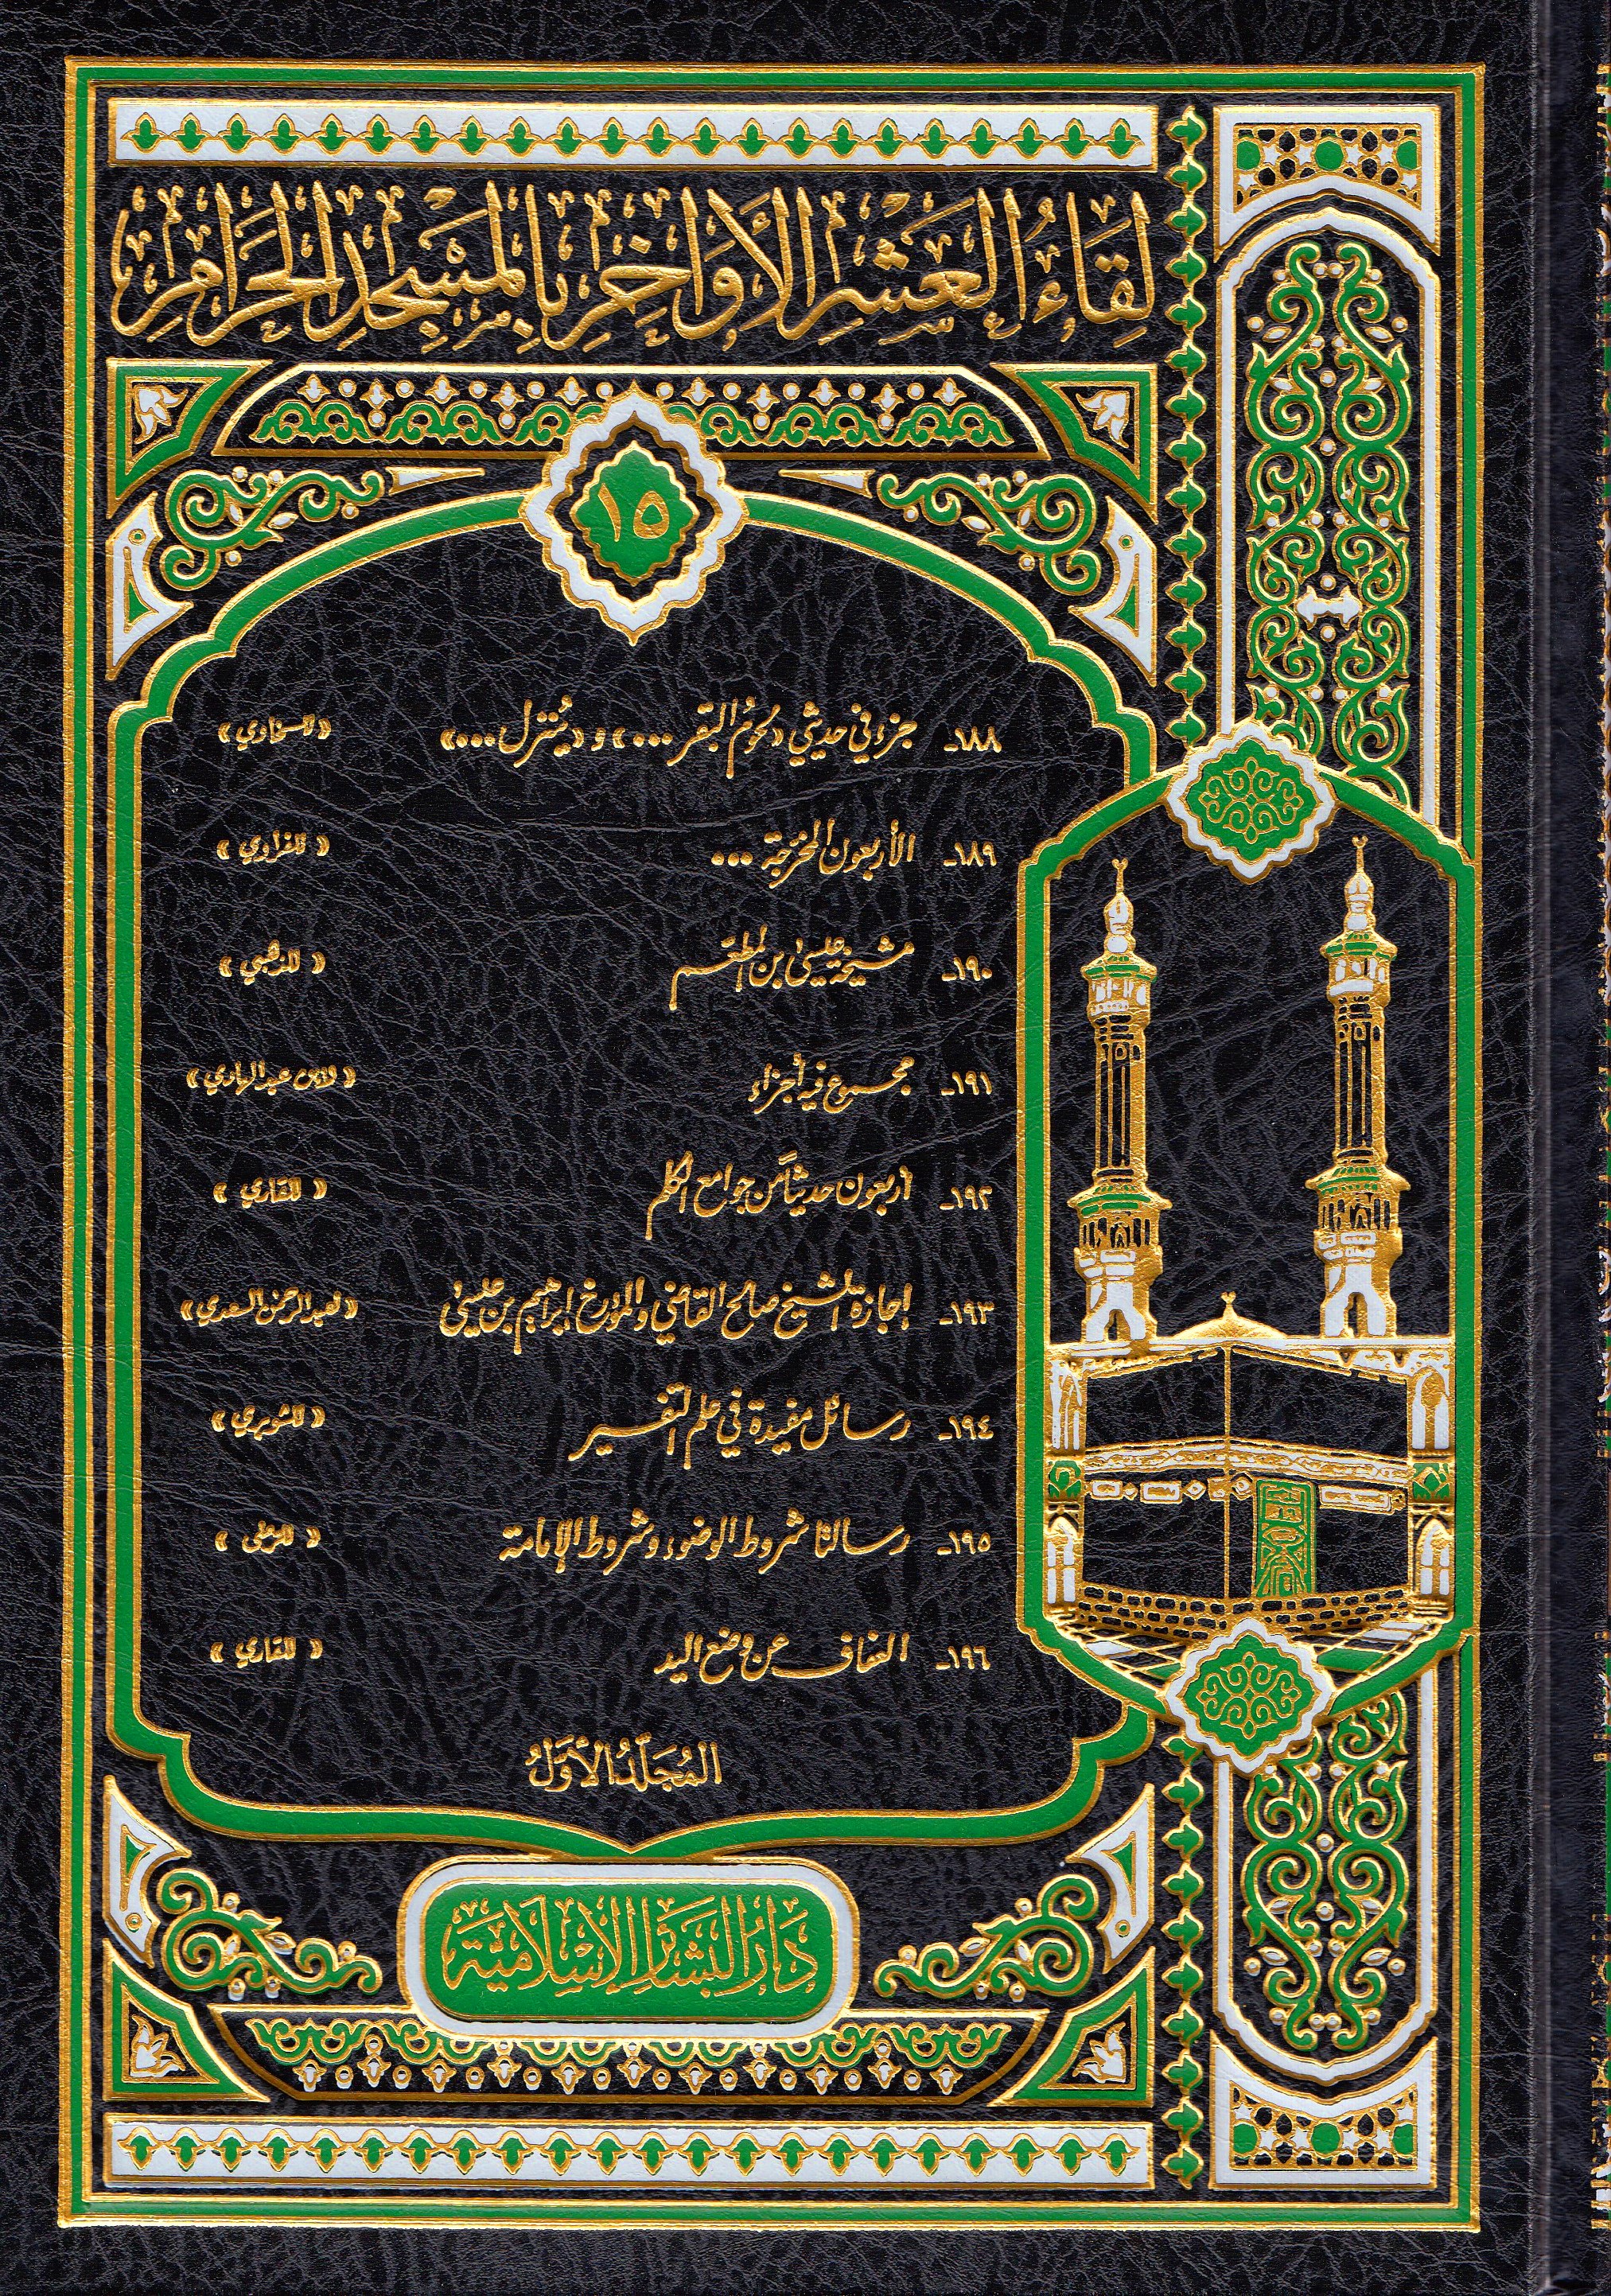 لِقَاءُ العَشْرِ الأَوَاخِرِ بِالمَسْجِدِ الحَرَامِ
١٥
١٨٨- جزء في حديثي «لحومُ البقر ...» و«يُنتزل ...» «للسخاوي»
١٨٩- الأربعون المخرَّجة ... «للفزاوي»
١٩٠- مشيخة عيسى بن المطعّم «للذهبي»
١٩١- مجموع فيه أجزاء «لابن عبدالهادي»
١٩٢- أربعون حديثاً من جوامع الكلم «للقاري»
١٩٣- إجازة الشيخ صالح القاضي والمؤرخ إبراهيم بن عيسى «لعبدالرحمن السعدي»
١٩٤- رسائل مفيدة في علم التفسير «للشوبري»
١٩٥- رسالتا شروط الوضوء وشروط الإمامة «للرملي»
١٩٦- العفاف عن وضع اليد «للقاري»
المُجَلَّدُ الأَوَّلُ
دَارُ البَشَائِرِ الإِسْلَامِيَّة